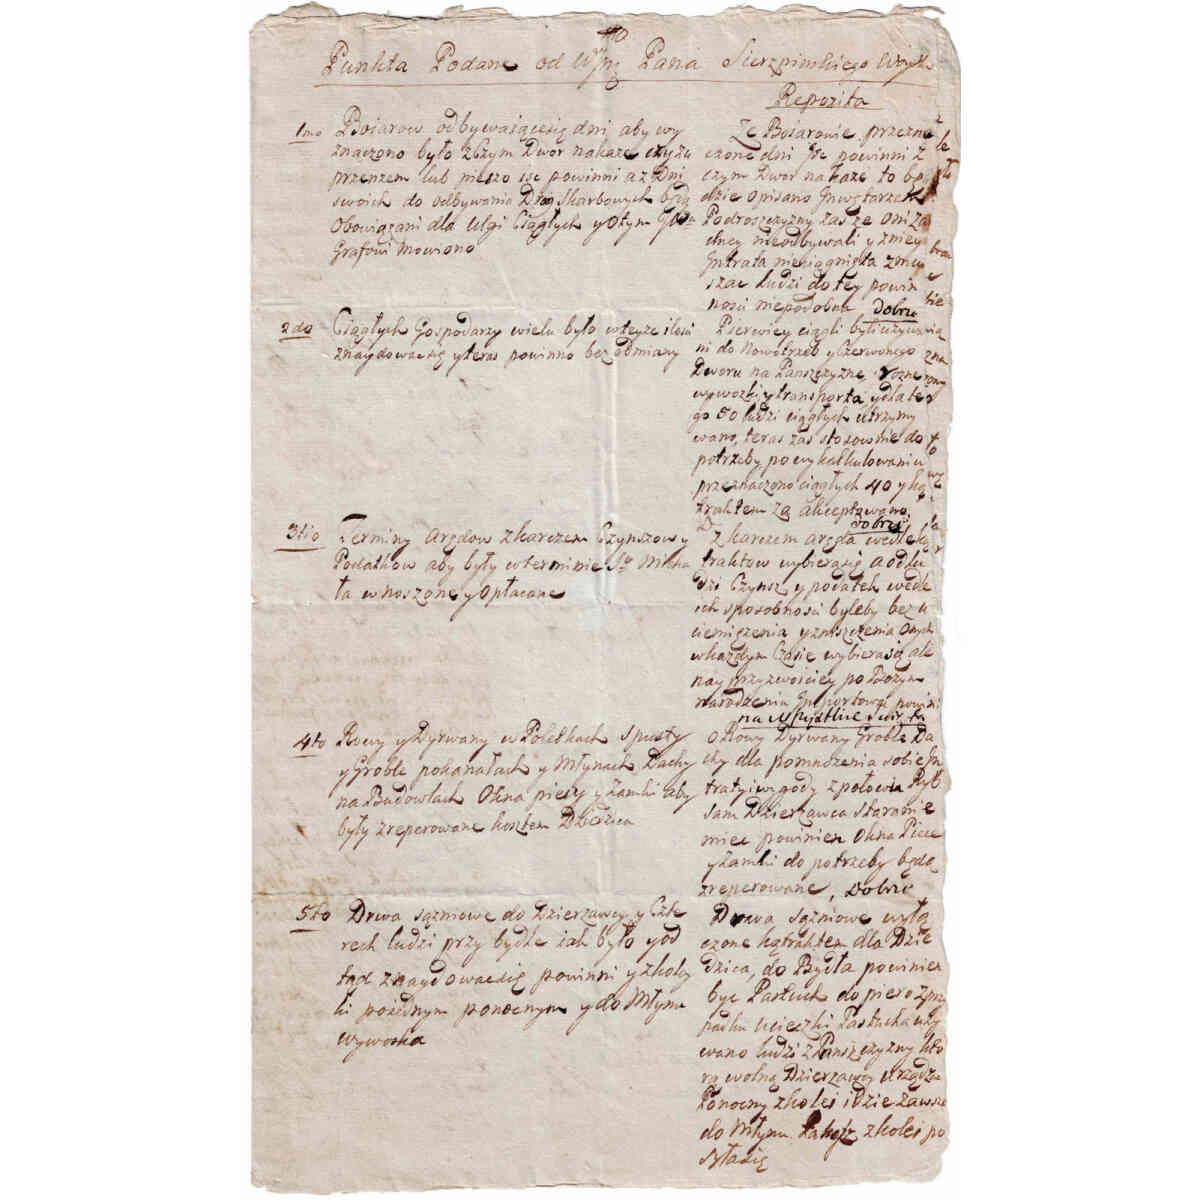 Punkta Podane od Wgo Pana Sierzpinskiego
Repozita
1mo Bojarow odbywaiącesię dni aby wy
znaczono było z Czym Dwor nakaże czyżu
przenzem lub pieszo iść powinni a z Dni
swoich do odbywania Skarbowych będą
Obowiązani dla Ulgi Ciągłych y o tym
Grafowi Mowiono
Ze Bojarowie przezna
czone dni iść powinni z
czym Dwor nakaże to bę
dzie opisano Inwętarzem
Podroszczyzny zas że oni ża
dney nieodbywali y zniey
Intrata nieciągnięta zmu
szac ludzi do tey powin
nosci niepodobna Dobrze
2do Ciągłych Gospodarzy wielu było wteyże ilosci
znaydowacsię y teras powinno bez odmiany
Pierwiey ciągli byli używa
ni do Nowotrzeb y Czerwonego
Dworu na Panszczyznę rozne
wywozki y transporta y dla te
go 50 ludzi ciągłych utrzymy
wano, teras zas stosownie do
potrzeby po wykalkulowaniu
przeznaczono ciągłych 40 y ką
traktem za akceptowano,
dobrze
3tio Terminy Arędow z karczem Czynszow y
Podatkow aby były w terminie Sgo Micha
ła wnoszone y opłacane
Z karczem aręda wedle ką
traktow wybierasię a od lu
dzi Czynsz y podatek wedle
ich sposobnosci byleby bez u
ciemiężenia y zniszczenia onych
w każdym Czasie wybierasię ale
nay przyzwoiciey po Bożym
narodzeniu Importować powinni
na wszystkie swięta
4to Rowy y Dyrwany w Poletkach spusty
y Groble po kanałach y Młynach Dachy
na Budowlach Okna piecy y Zamki aby
były zreperowane kosztem Dziedzica
O Rowy Dyrwany Groble Da
chy dla pomnożenia sobie In
traty i wygody z połowia Ryb
sam Dzierżawca staranie
miec powinien Okna Piece
y Zamki do potrzeby będą
zreperowane, Dobrze
5to Drwa sążniowe do Dzierżawcy y Czte
rech ludzi przy bydle iak było y od
tąd znaydowacsię powinni y z koley
ki poiednym ponocnym y do Młynu
wywoska
Drwa sążniowe wyłą
czone kątraktem dla Dzie
dzica, do Bydła powinien
byc Pastuch dopiero z przy
padku ucieczki Pastucha uży
wano ludzi z Panszczyzny kto
rą wolną Dzierżawcy urządza
Ponocny z kolei idzie zawsze
do Młynu także z kolei po
syłasię